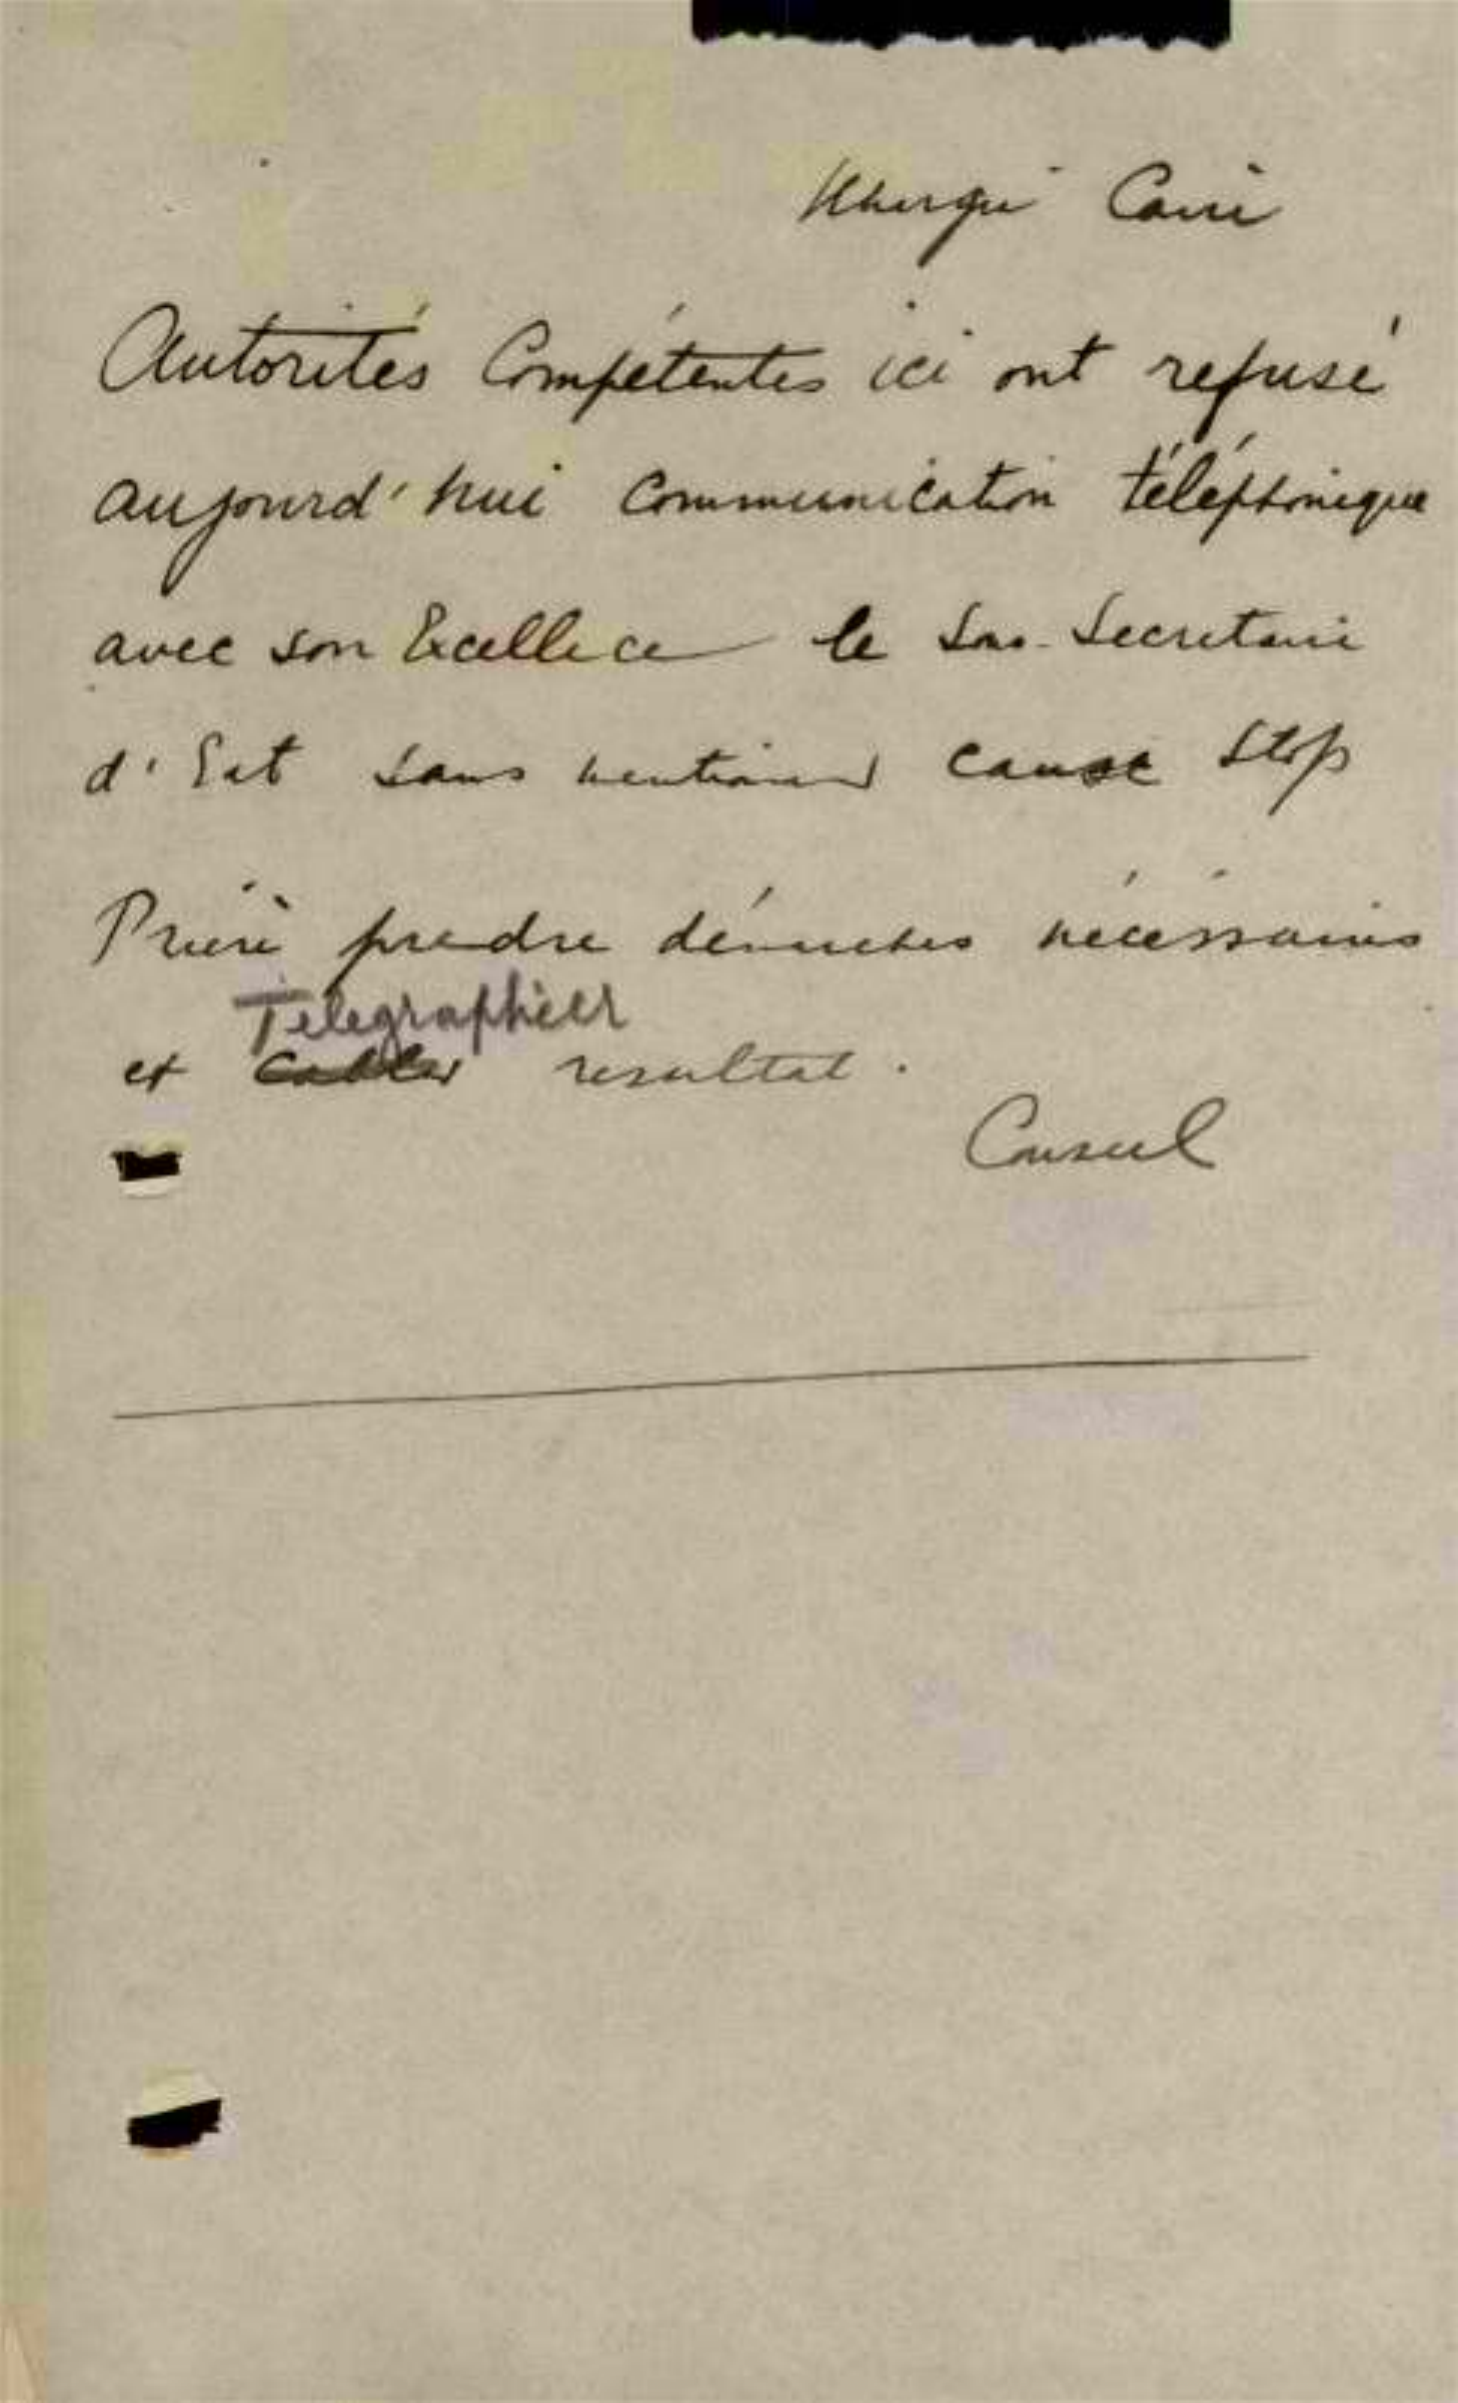 Caire
Autorités Compétentes ici ont refusé
aujourd'hui communication téléphonique
avec son Excellence le Sous-Secretaire
d'Etat sans mentionner cause Stop
Prière prendre démarches nécessaires
Télégraphier
et cabler resultat.
Consul